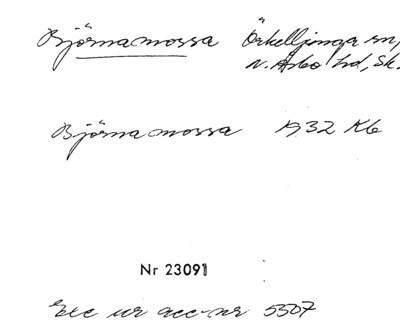 Björnamossa Örkelljunga sn,
N. Åsbo hd, Sk.
Björnamossa 1932 Kb
Nr 23091
Exc ur acc-nr 5507